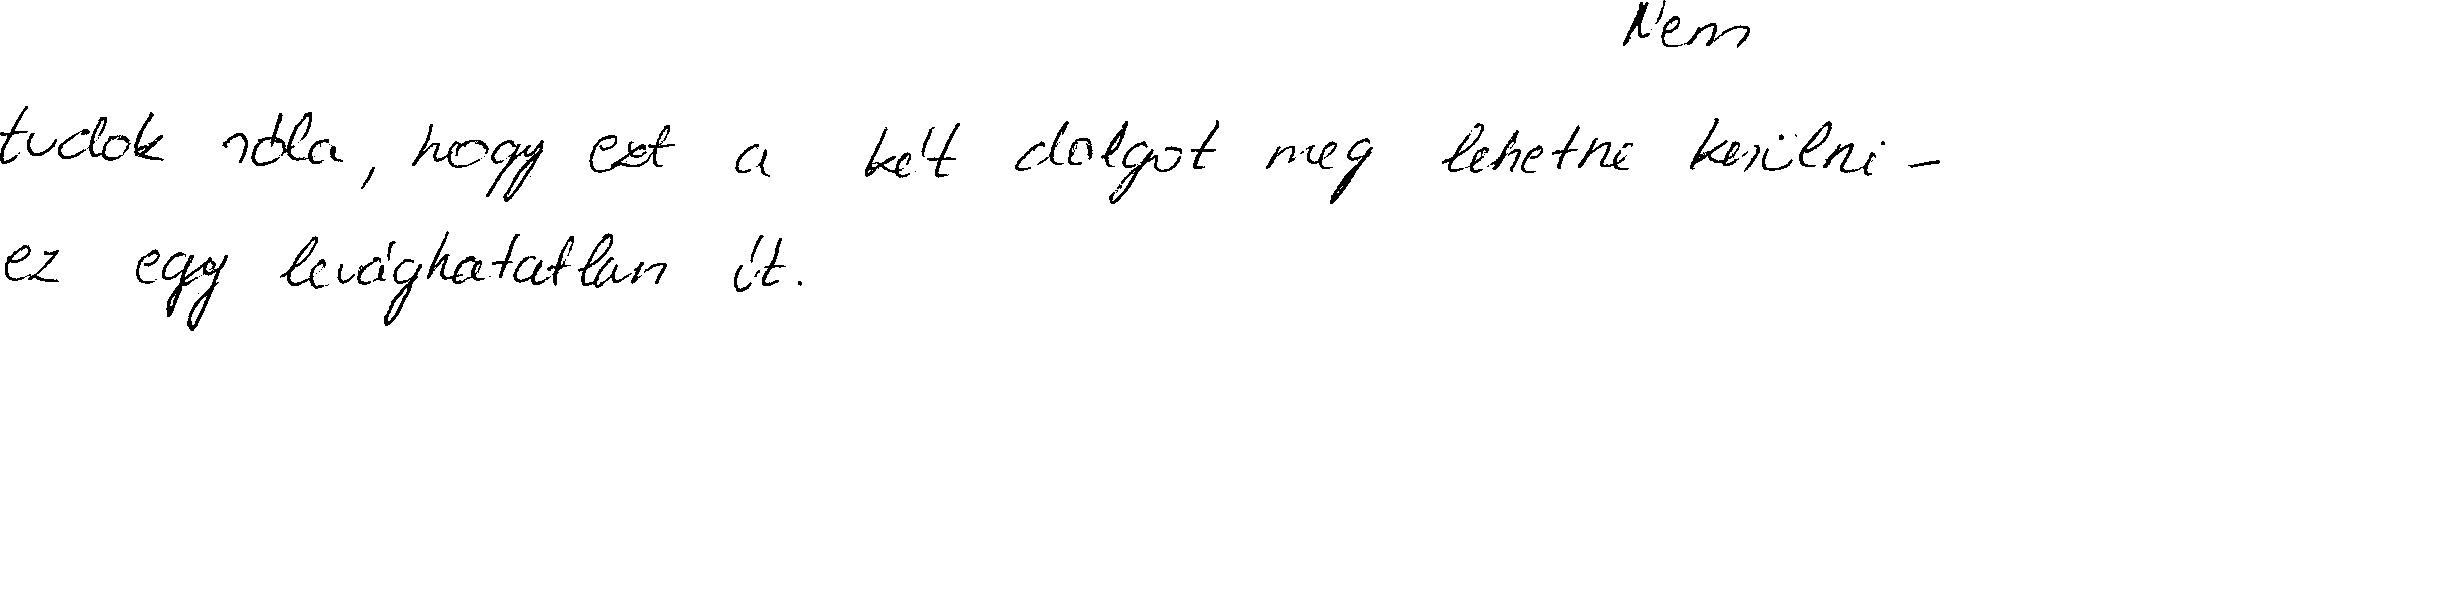 Nem
tudok róla, hogy ezt a két dolgot meg lehetne kerülni -
ez egy levághatatlan út.